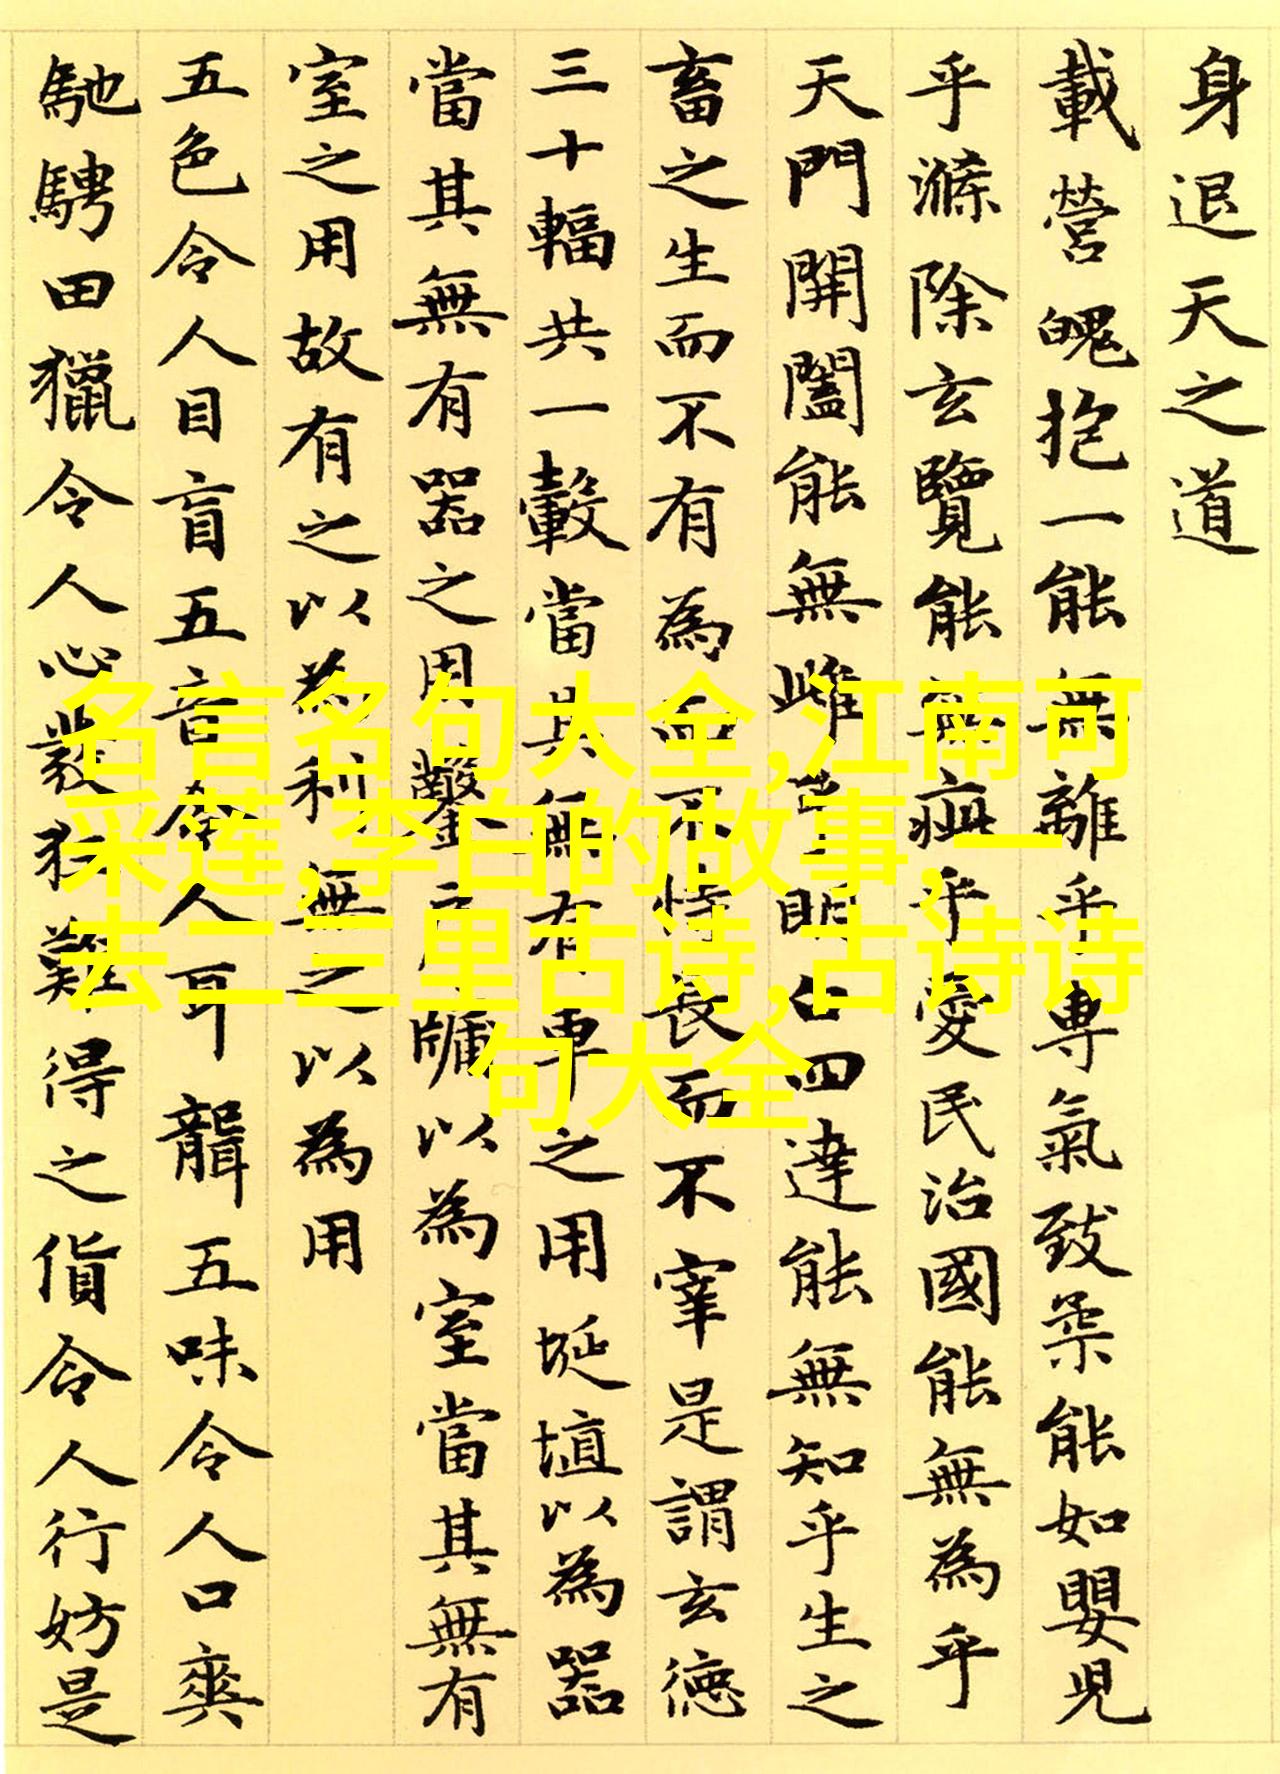 身退天之道
載營魄抱一能無離乎專氣致柔能如嬰兒
乎滌除玄覽能無疵乎愛民治國能無為乎
天門開闔能無雌乎明白四達能無知乎生之
畜之生而不有為而不恃長而不宰是謂玄德
三十輻共一轂當其無有車之用埏埴以為器
當其無有器之用鑿戶牖以為室當其無有
室之用故有之以為利無之以為用
五色令人目盲五音令人耳聾五味令人口爽
馳騁田獵令人心發狂難得之貨令人行妨是
名言名句大全,江南可
采莲,李白的故事,一
去二三里古诗,古诗诗
句大全